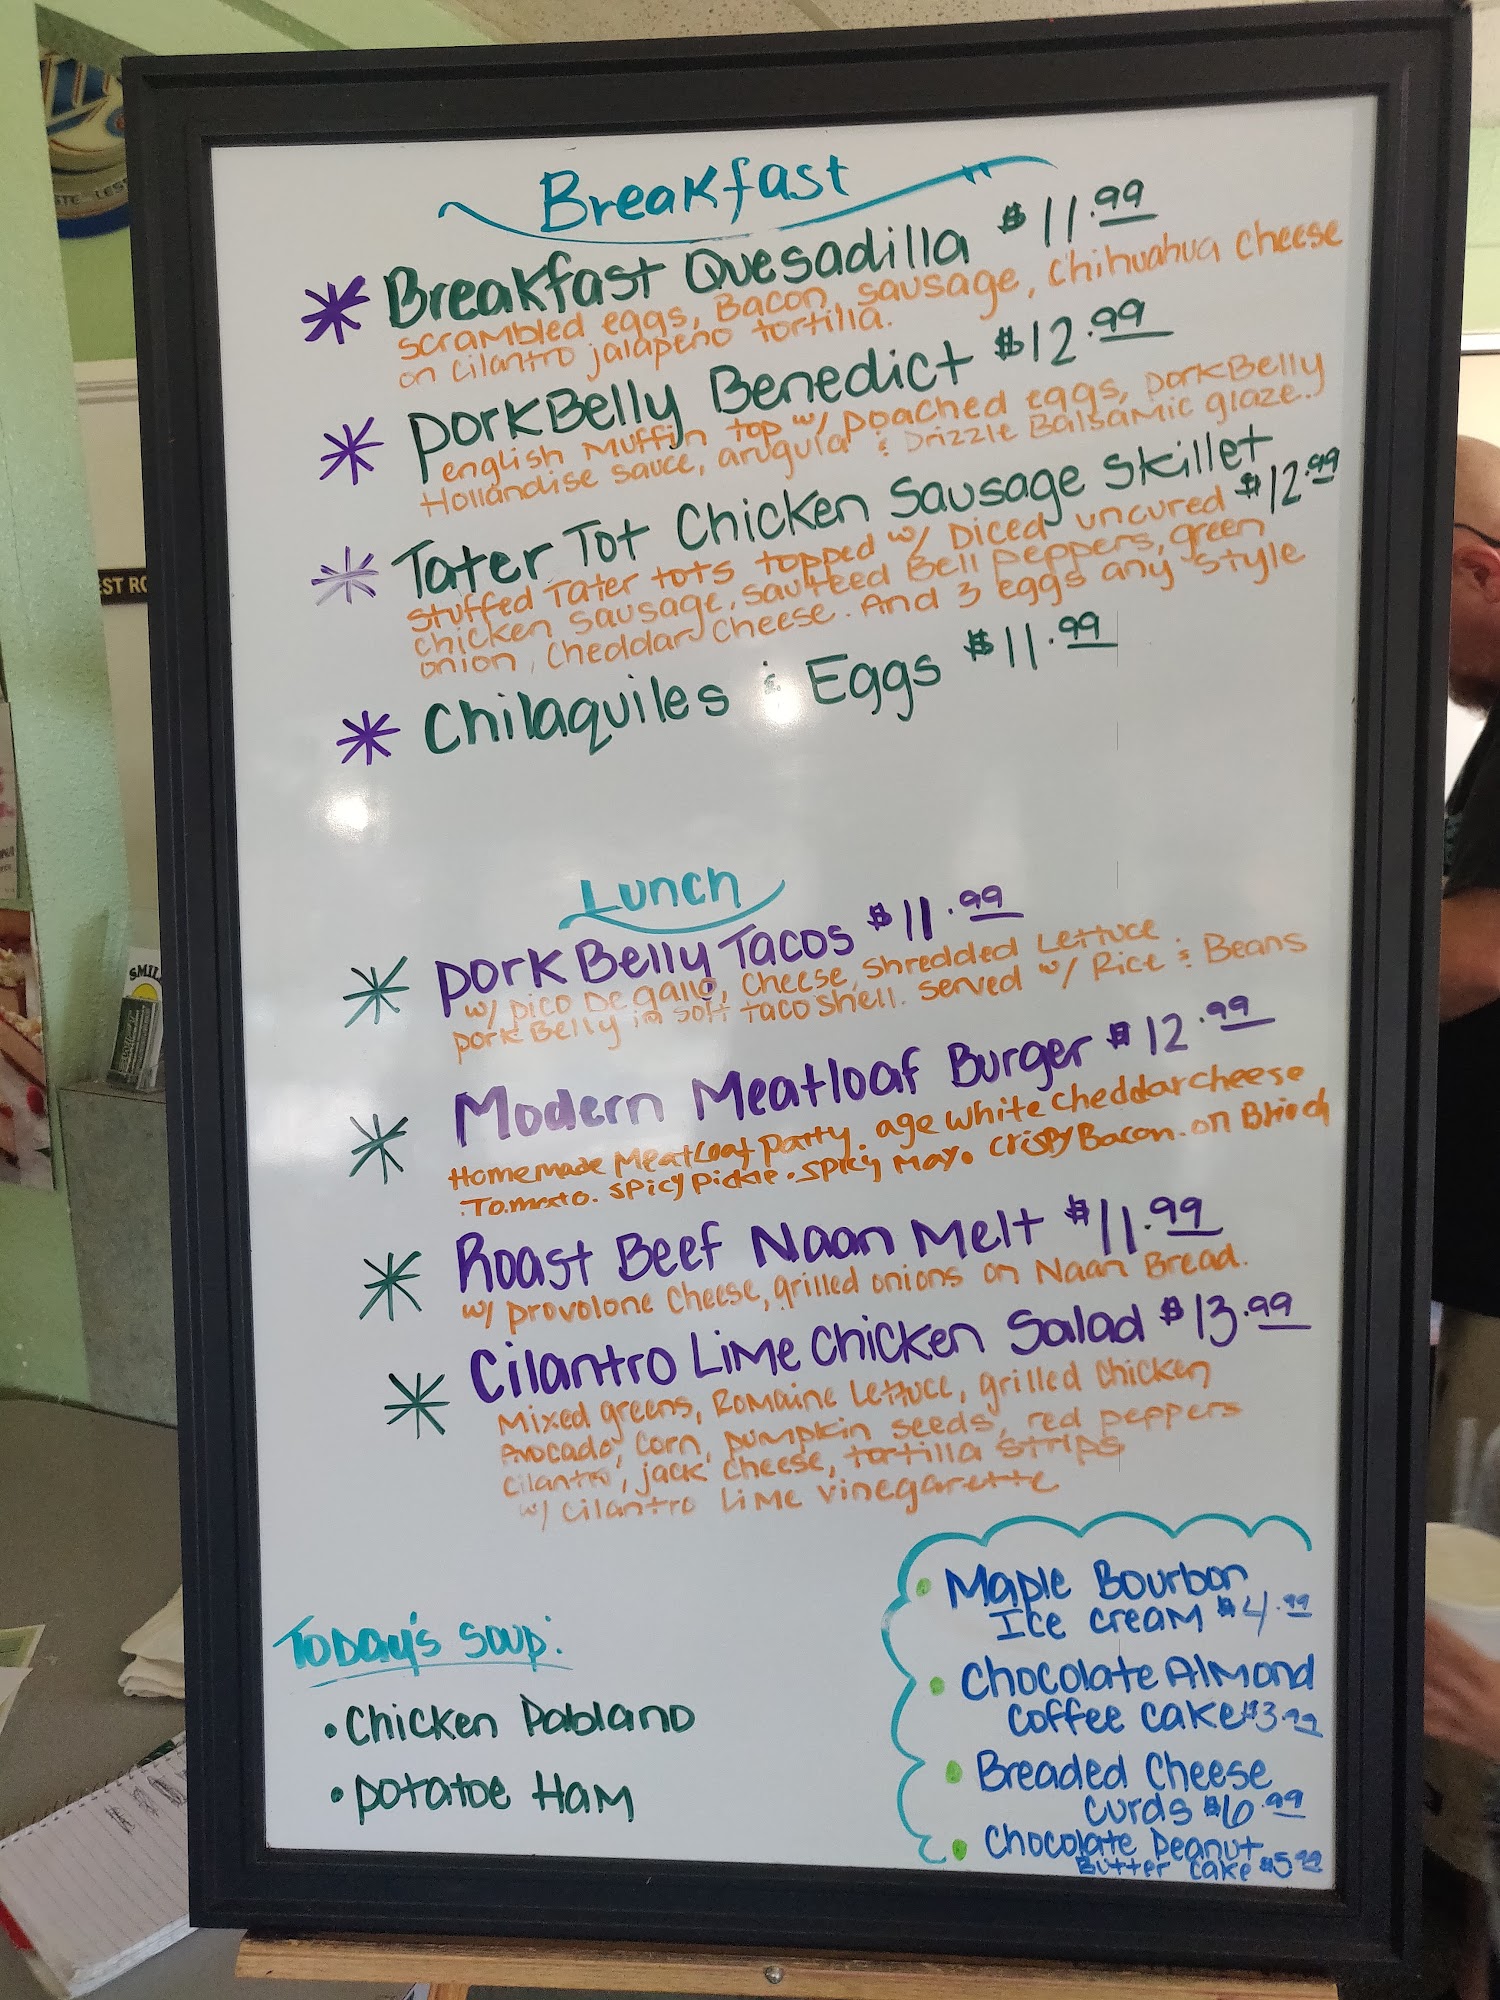 Breakfast
Breakfast Quesadilla $11.99
scrambled eggs, Bacon, sausage, chihuahua cheese
on cilantro jalapeno tortilla.
porkBelly Benedict $12.99
english muffin top w/ poached eggs, porkBelly
Hollandise sauce, arugula & Drizzle Balsamic glaze.
Tater Tot Chicken Sausage Skillet
$12.99
stuffed Tater tots topped w/ Diced uncured
chicken sausage, sauteed Bell peppers, green
onion, cheddar cheese. And 3 eggs any style
Chilaquiles & Eggs $11.99
Lunch
pork Belly Tacos $11.99
w/ pico De gallo, cheese, shredded Lettuce
pork Belly in soft taco shell. served w/ Rice & Beans
Modern Meatloaf Burger $12.99
Homemade Meatloaf patty. age white cheddar cheese
Tomato. spicy pickle. spicy mayo. crispy Bacon. on Brioch
Roast Beef Naan Melt $11.99
w/ provolone cheese, grilled onions on Naan Bread.
Cilantro Lime Chicken Salad $13.99
Mixed greens, Romaine Lettuce, grilled chicken
Avocado, corn, pumpkin seeds, red peppers
cilantro, jack cheese, tortilla strips
w/ cilantro lime vinegarette
Today's soup:
• Chicken Pablano
• potatoe Ham
• Maple Bourbon
Ice cream $4.99
• Chocolate Almond
coffee cake $3.99
• Breaded Cheese
curds $6.99
• Chocolate Peanut
Butter cake $5.99